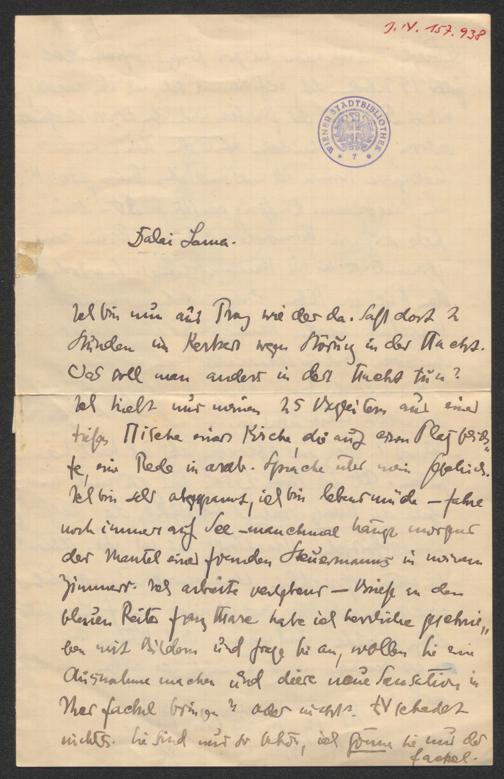 J.N. 157.938
WIENER STADTBIBLIOTHEK
7
Dalai Lama.
Ich bin nun aus Prag wieder da. Saß dort 2
Stunden im Kerker wegen Störung in der Nacht.
Was soll man anders in der Nacht tun?
Ich hielt nur meinen 25 Begleitern aus einer
tiefen Nische einer Kirche die auf einem Platz
te, eine Rede in arab. Sprache über mein
Ich bin sehr abgespannt, ich bin lebensmüde – fahre
noch immer auf See – manchmal hängt morgens
der Mantel eines fremden Steuermanns in meinem
Zimmer. Ich arbeite – Briefe an den
blauen Reiter Franz Marc habe ich herrliche geschrie„
ben mit Bildern und frage Sie an, wollen Sie eine
Ausnahme machen und diese neue Sensation in
Ihrer Fackel bringen? oder nicht. Es schadet
nichts. Sie sind mir so ich gönne Sie nur der
Fackel.